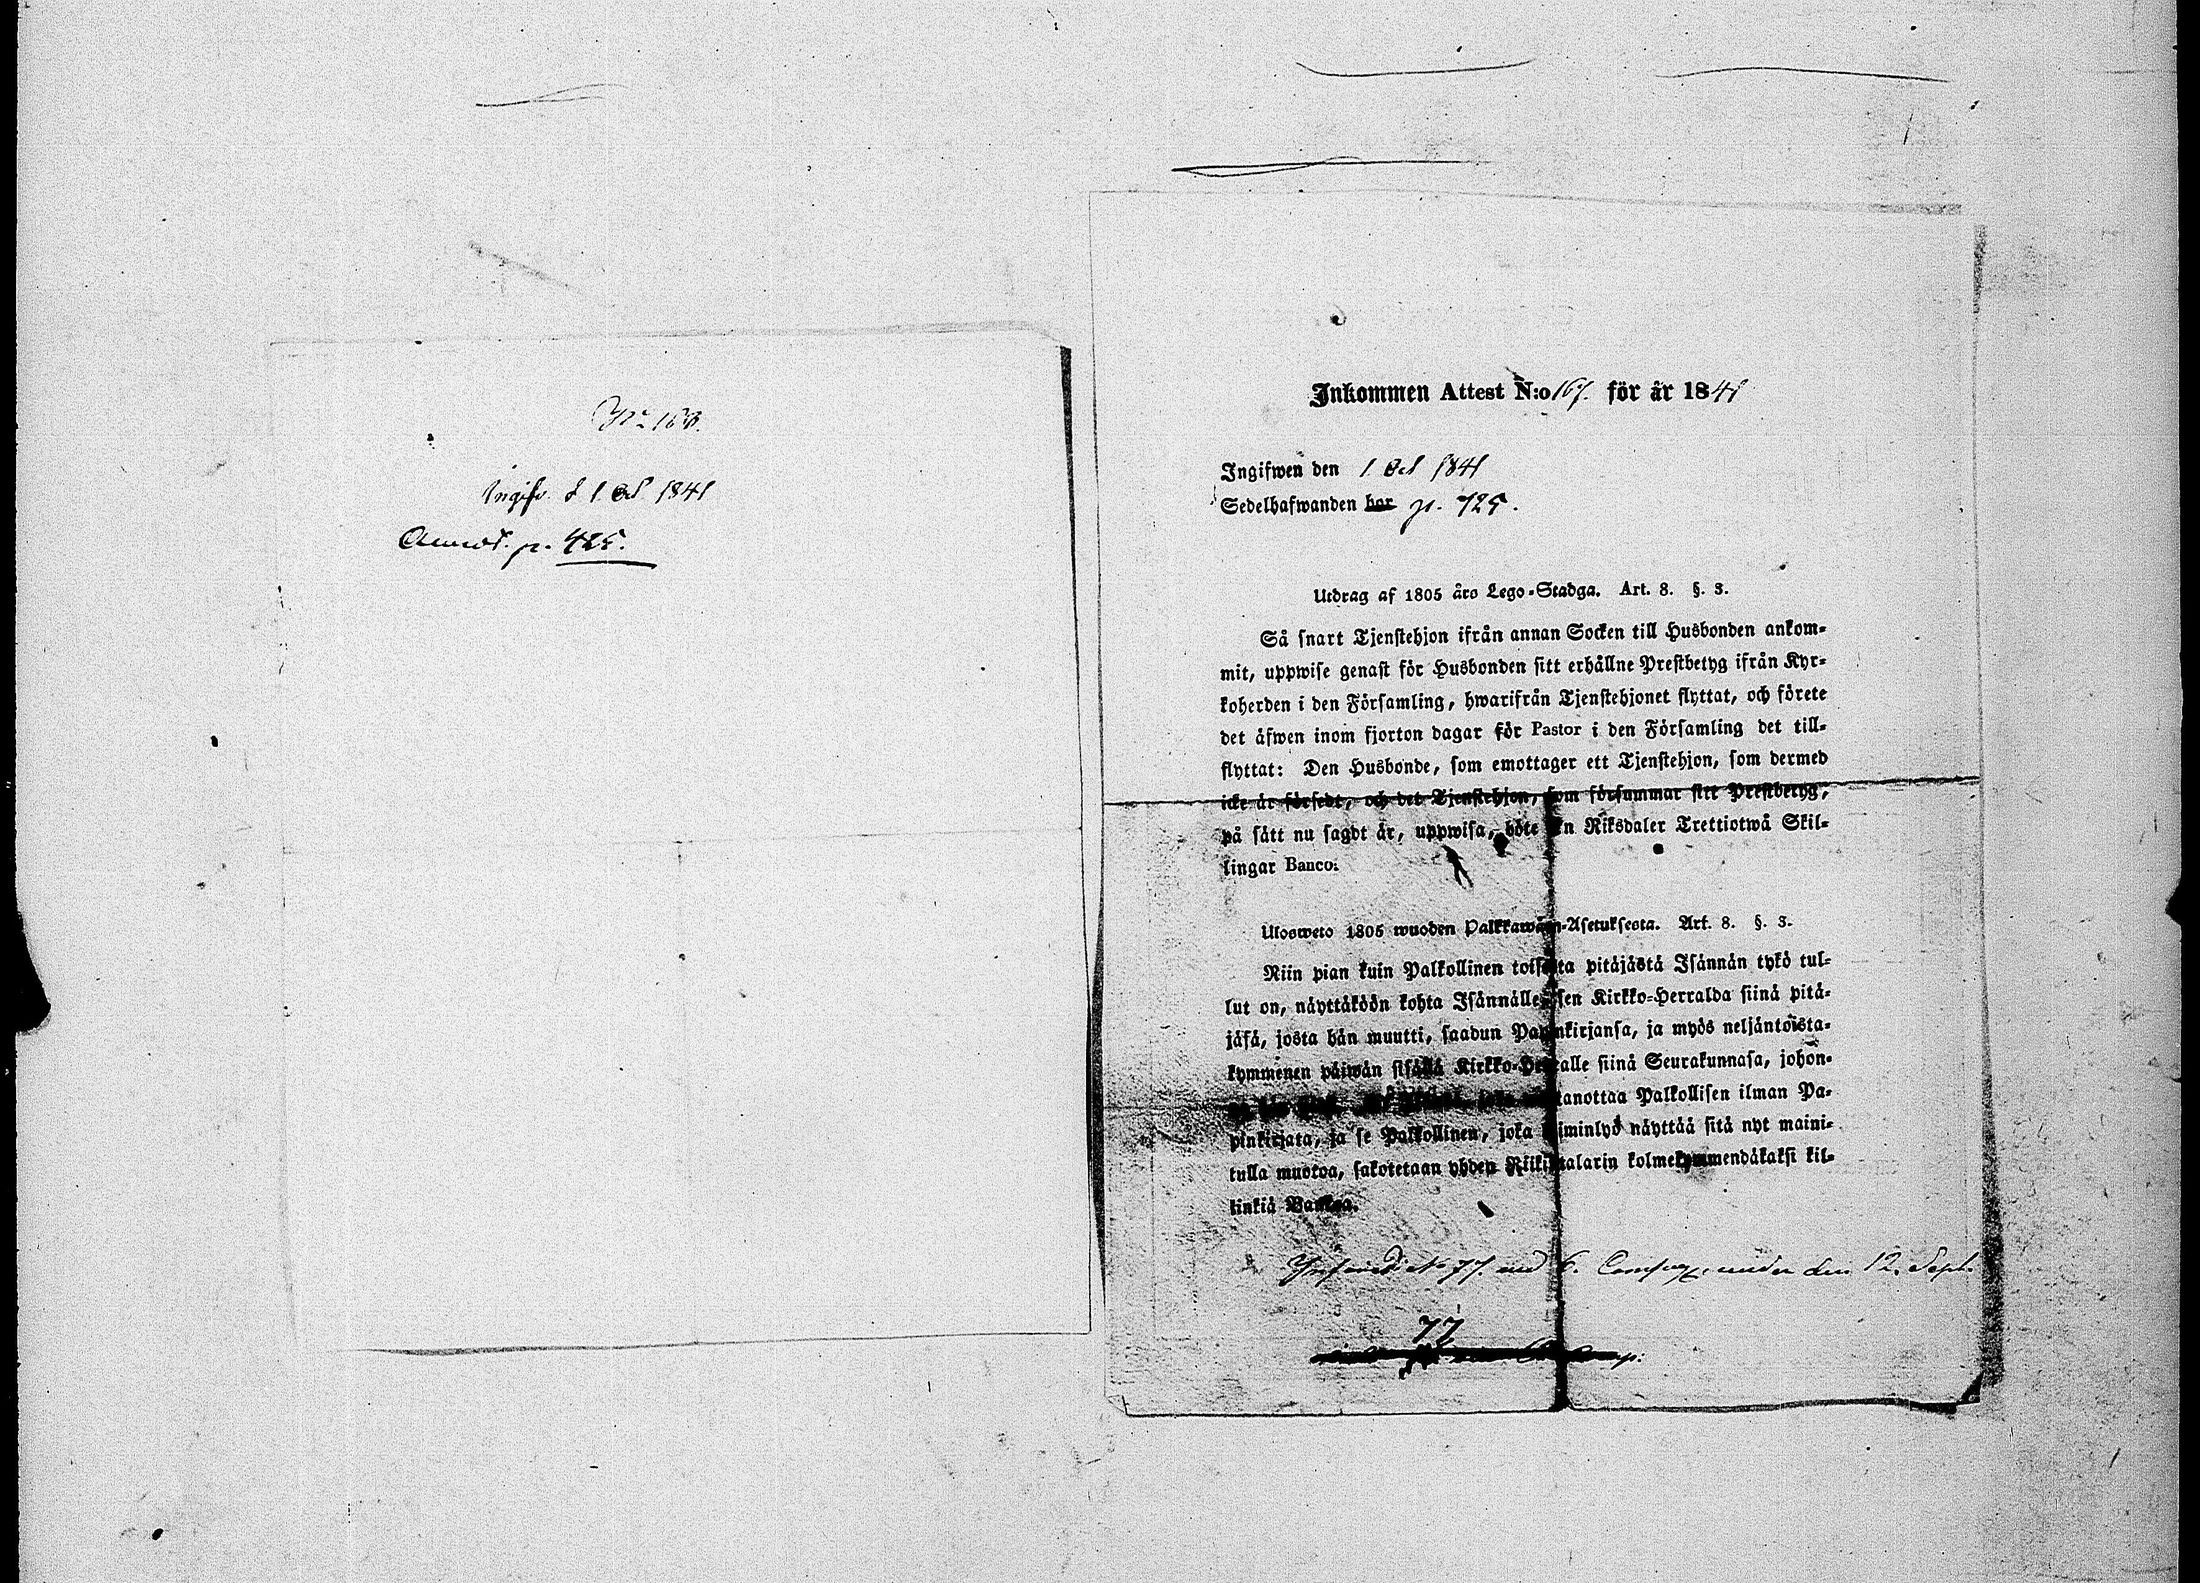 No 168.
Ingifv. d 1 Oct 1841
Annot. p. 425.
Inkommen Attest N:o 167. för år 1841
Ingifwen den 1 Oct 1841
Sedelhafwanden har p. 725.
Utdrag af 1805 års Lego-Stadga. Art. 8. §. 3.
Så snart Tjenstehjon ifrån annan Socken till Husbonden ankom-
mit, uppwise genast för Husbonden sitt erhållne Prestbetyg ifrån Kyr-
koherden i den Församling, hwarifrån Tjenstehjonet flyttat, och förete
det äfwen inom fjorton dagar för Pastor i den Församling det till-
flyttat: Den Husbonde, som emottager ett Tjenstehjon, som dermed
icke är försedt, och det Tjenstehjon, som försummar sitt Prestbetyg,
på sätt nu sagdt är, uppwisa, böte En Riksdaler Trettiotwå Skil-
lingar Banco.
Ulosweto 1805 wuoden Palkkawäen-Asetuksesta. Art. 8. §. 3.
Niin pian kuin Palkollinen toisesta pitäjästä Isännän tykö tul-
lut on, näyttäköön kohta Isännällensä sen Kirkko-Herralda siinä pitä-
jäsä, josta hän muutti, saadun Papinkirjansa, ja myös neljäntoista-
kymmenen päiwän sisällä Kirkko-Herralle siinä Seurakunnasa, johon-
wastanottaa Palkollisen ilman Pa-
pinkirjata, ja se Palkollinen, joka laiminlyö näyttää sitä nyt maini-
tulla muotoa, sakotetaan yhden Riikintalarin kolmekymmendäkaksi kil-
linkiä Bankoa.
No 77. 6. under den 12. Sept.
77